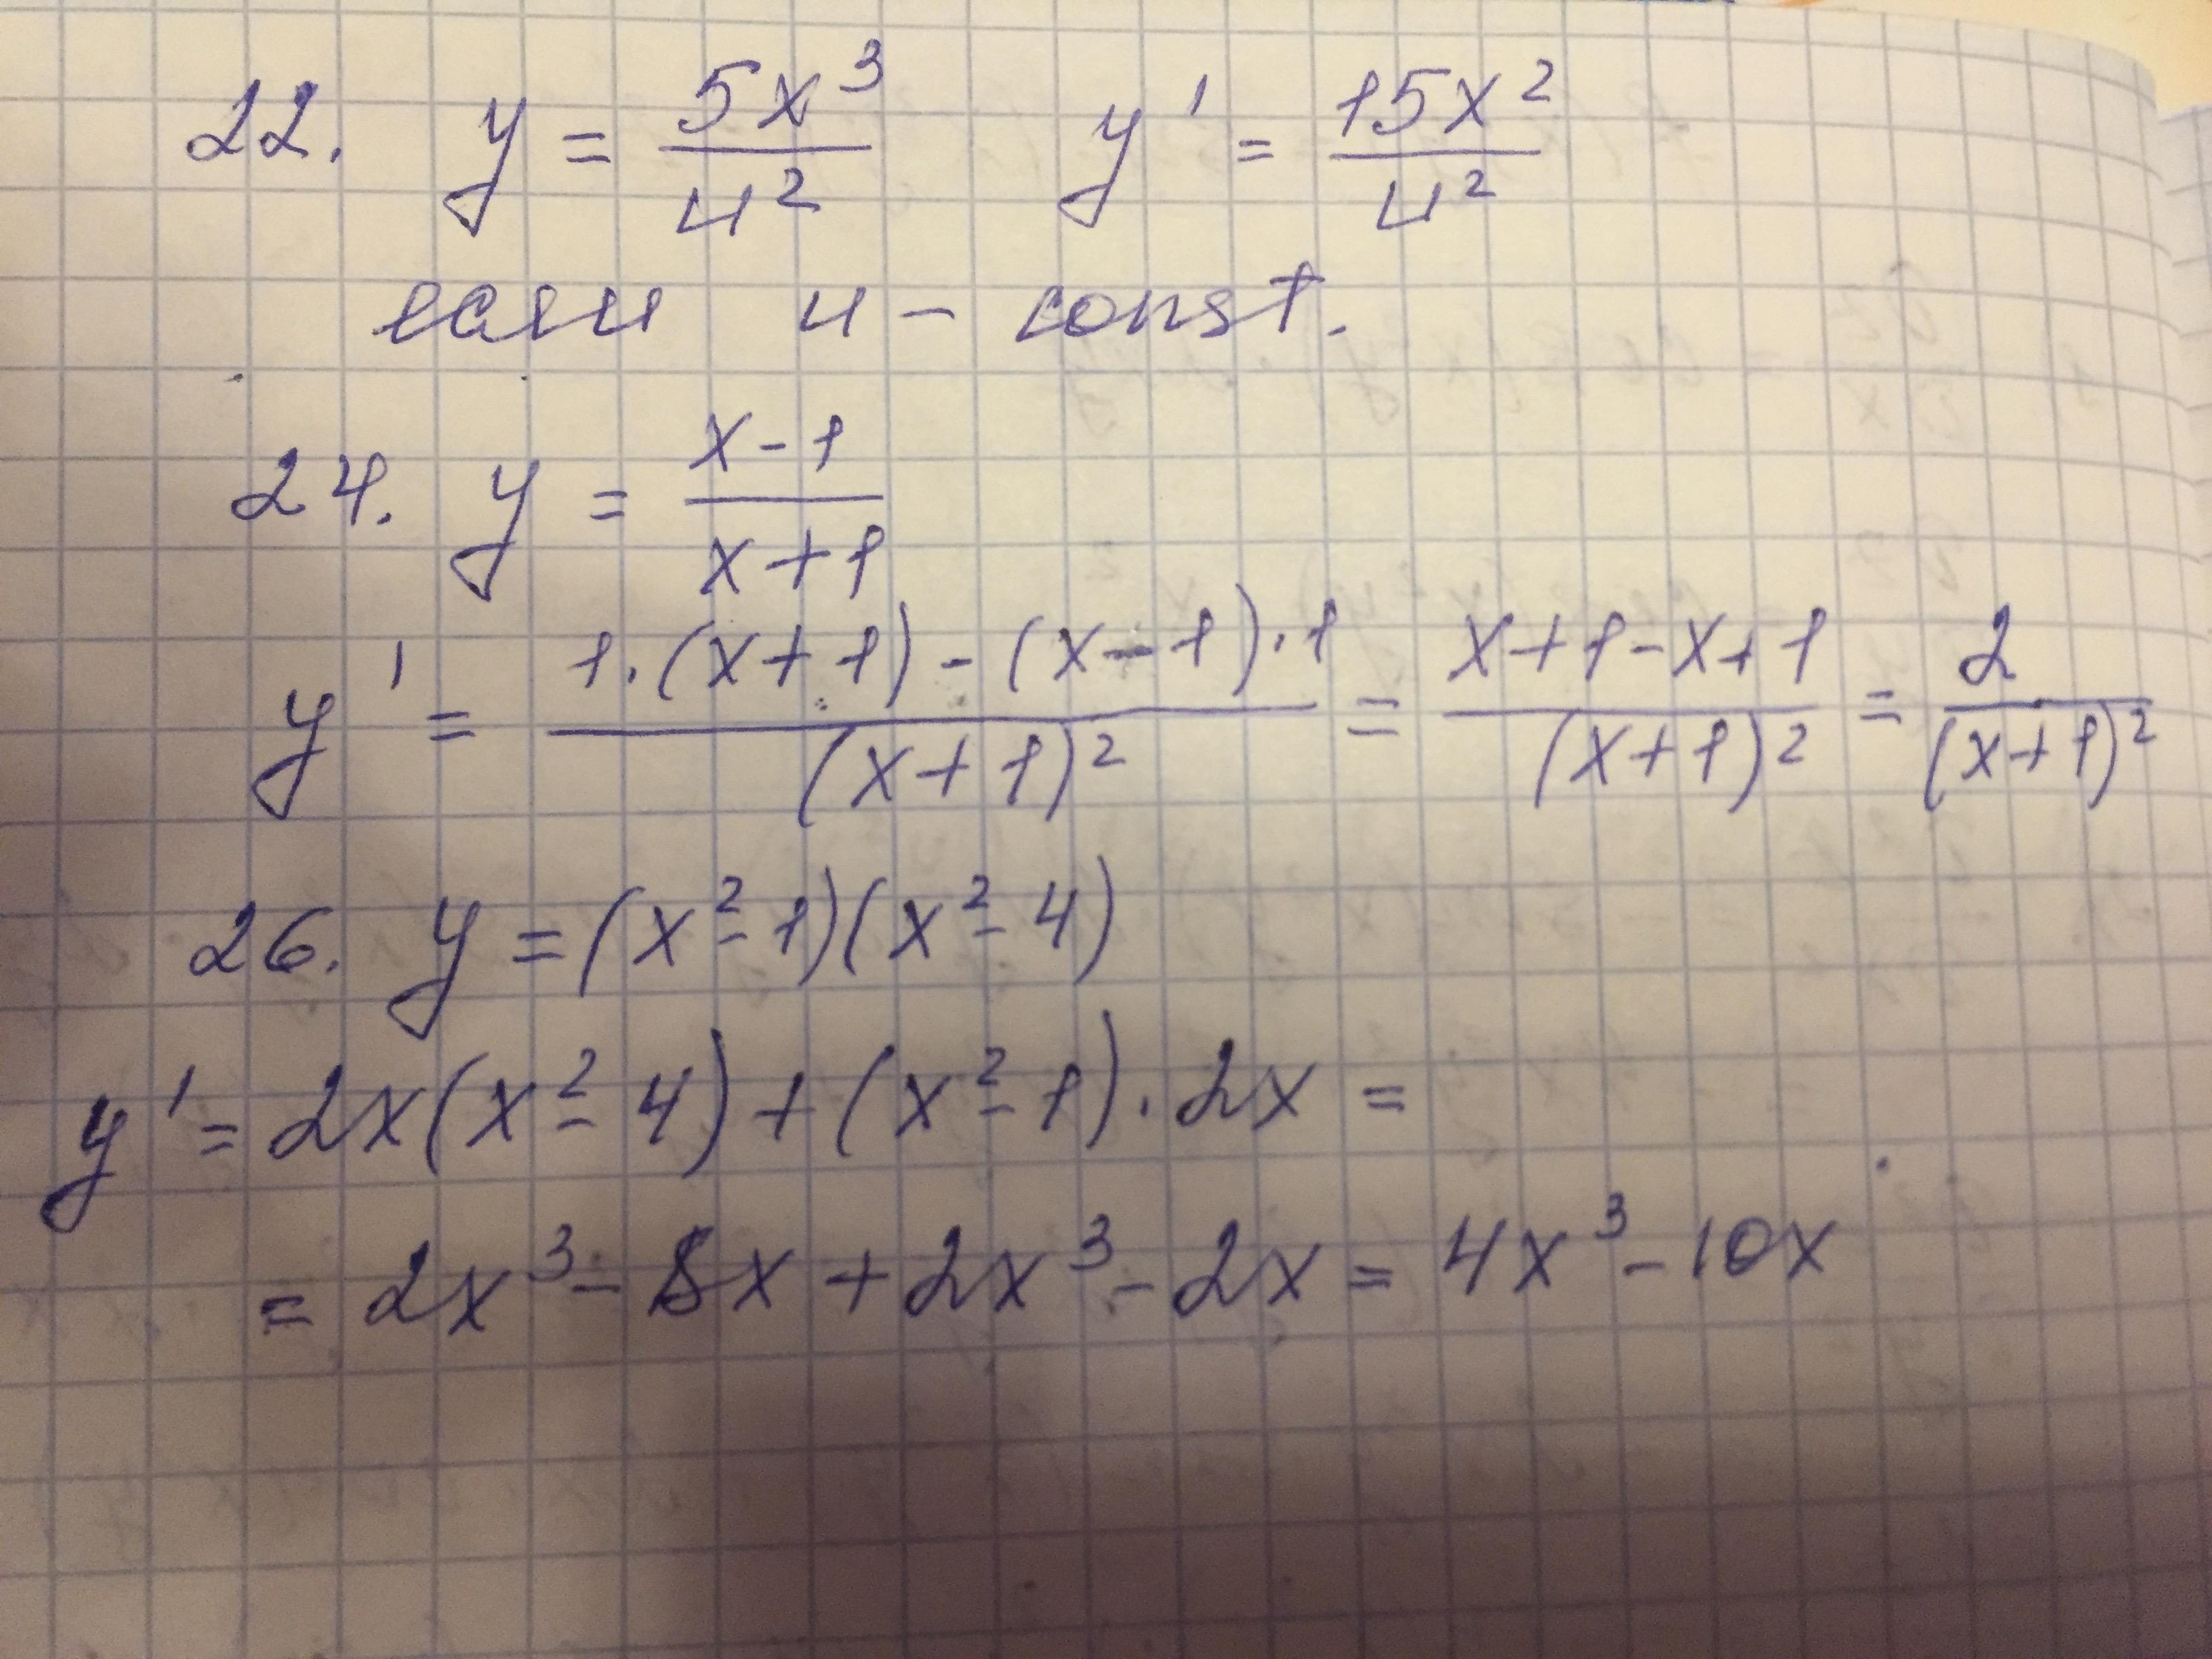 22. y = 5x³/u² y' = 15x²/u²
если u - const.
24. y = (x-1)/(x+1)
y' = (1·(x+1)-(x-1)·1)/(x+1)² = (x+1-x+1)/(x+1)² = 2/(x+1)²
26. y = (x²-1)(x²-4)
y' = 2x(x²-4)+(x²-1)·2x =
= 2x³-8x+2x³-2x = 4x³-10x